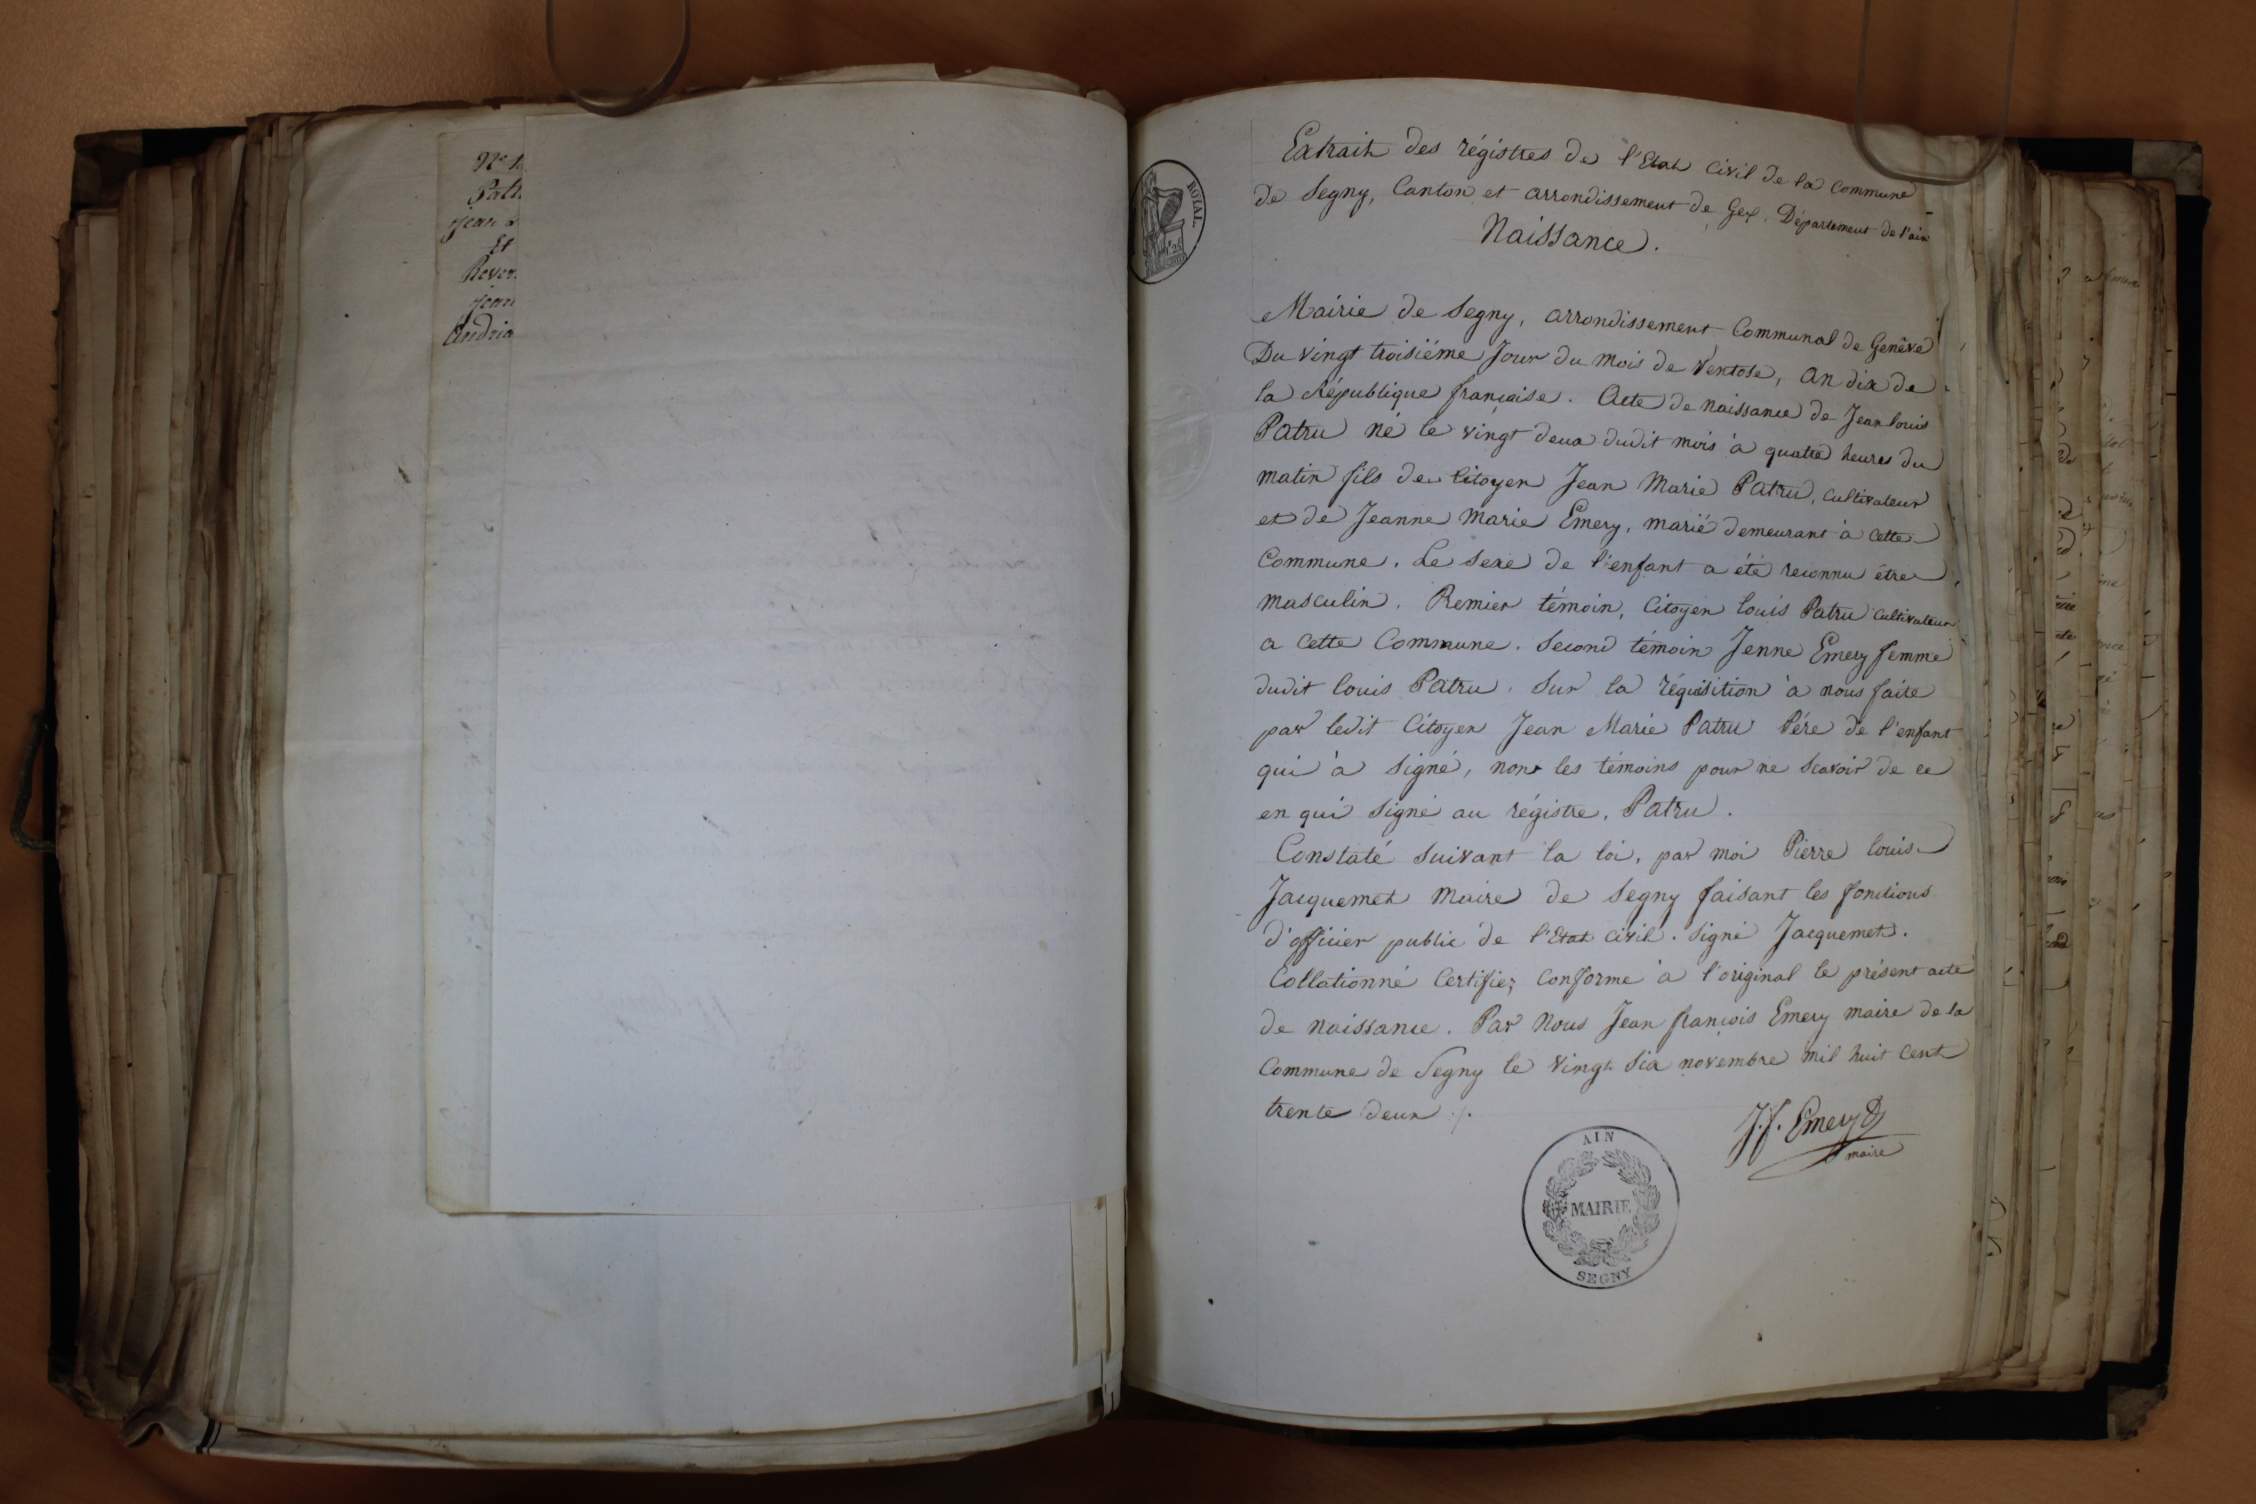 Et
Extrait des régistres de l'Etat Civil de la Commune
de Segny, Canton et arrondissement de Gex. Département de l'ain
Naissance.
ROYAL
Mairie de Segny, arrondissement Communal de Genève
Du vingt troisiéme Jour du mois de Ventose, an dix de
la République française. Acte de naissance de Jean louis
Patru né le vingt deux dudit mois à quatre heures du
matin fils de Citoyen Jean Marie Patru, cultivateur
et de Jeanne Marie Emery, marié demeurant à cette
Commune. Le Sexe de l'enfant a été reconnu étre
masculin. Premier témoin, Citoyen louis Patru cultivateur
a cette Commune. Second témoin Jenne Emery femme
dudit louis Patru. Sur la réquisition à nous faite
par ledit Citoyen Jean Marie Patru Pére de l'enfant
qui à signé, non les témoins pour ne Scavoir de ce
en qui signé au régistre. Patru.
Constaté suivant la loi, par moi Pierre louis
Jacquemet Maire de Segny faisant les fonctions
d'officier public de l'Etat civil. signé Jacquemet.
Collationné Certifié; Conforme à l'original le présent acte
de naissance. Par Nous Jean françois Emery maire de la
Commune de Segny le Vingt Six novembre mil huit cent
trente deux ./.
J. f. Emery
maire
AIN
MAIRIE
SEGNY